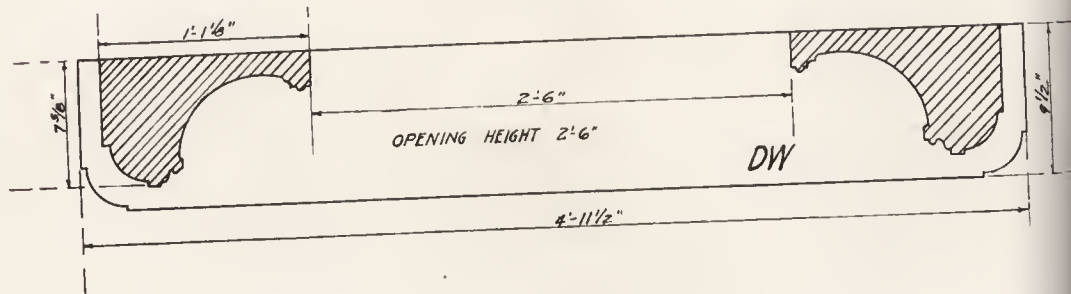 1'-1 1/8"
7 5/8"
2'-6"
9 1/2"
OPENING HEIGHT 2'-6"
DW
4'-11 1/2"